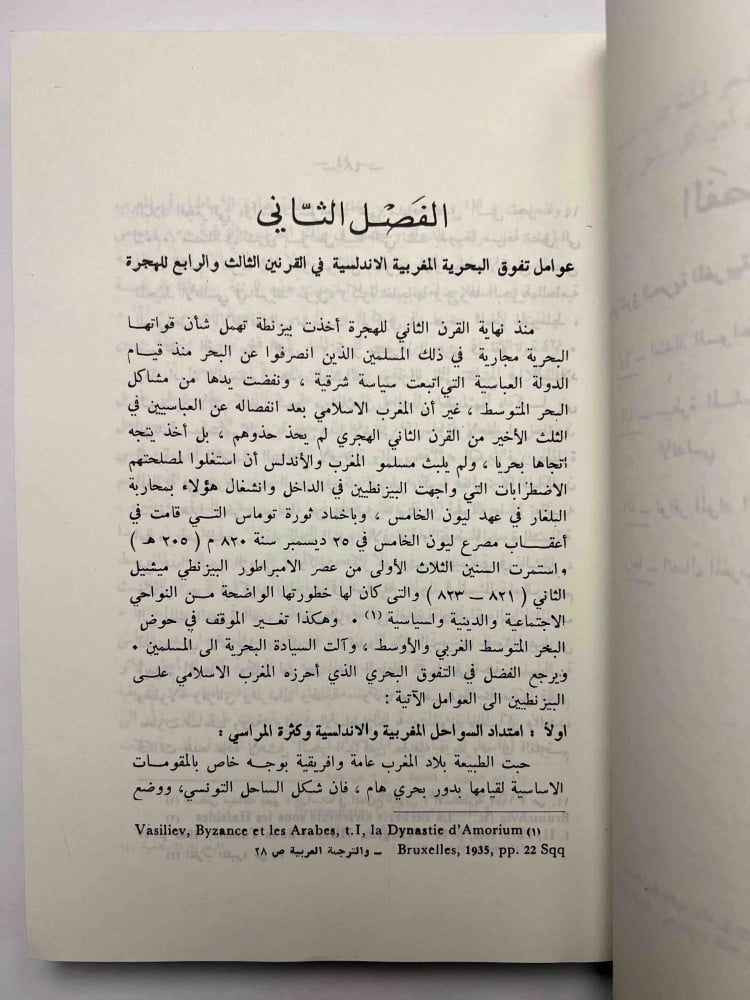 الفَصْل الثَّاني
عوامل تفوق البحرية المغربية الاندلسية في القرنين الثالث والرابع للهجرة
منذ نهاية القرن الثاني للهجرة أخذت بيزنطة تهمل شأن قواتها
البحرية مجارية في ذلك المسلمين الذين انصرفوا عن البحر منذ قيام
الدولة العباسية التي اتبعت سياسة شرقية ، ونفضت يدها من مشاكل
البحر المتوسط ، غير أن المغرب الاسلامي بعد انفصاله عن العباسيين في
الثلث الأخير من القرن الثاني الهجري لم يحذ حذوهم ، بل أخذ يتجه
اتجاها بحريا ، ولم يلبث مسلمو المغرب والأندلس أن استغلوا لمصلحتهم
الاضطرابات التي واجهت البيزنطيين في الداخل وانشغال هؤلاء بمحاربة
البلغار في عهد ليون الخامس ، وباخماد ثورة توماس التي قامت في
أعقاب مصرع ليون الخامس في ٢٥ ديسمبر سنة ٨٢٠ م ( ٢٠٥ هـ )
واستمرت السنين الثلاث الأولى من عصر الامبراطور البيزنطي ميشيل
الثاني ( ٨٢١ – ٨٢٣ ) والتي كان لها خطورتها الواضحة من النواحي
الاجتماعية والدينية والسياسية (١) . وهكذا تغير الموقف في حوض
البحر المتوسط الغربي والأوسط ، وآلت السيادة البحرية الى المسلمين .
ويرجع الفضل في التفوق البحري الذي أحرزه المغرب الاسلامي على
البيزنطيين الى العوامل الآتية :
اولاً : امتداد السواحل المغربية والاندلسية وكثرة المراسي :
حبت الطبيعة بلاد المغرب عامة وافريقية بوجه خاص بالمقومات
الاساسية لقيامها بدور بحري هام ، فان شكل الساحل التونسي، ووضع
Vasiliev, Byzance et les Arabes, t.I, la Dynastie d'Amorium (١)
Bruxelles, 1935, pp. 22 Sqq – والترجمة العربية ص ٢٨